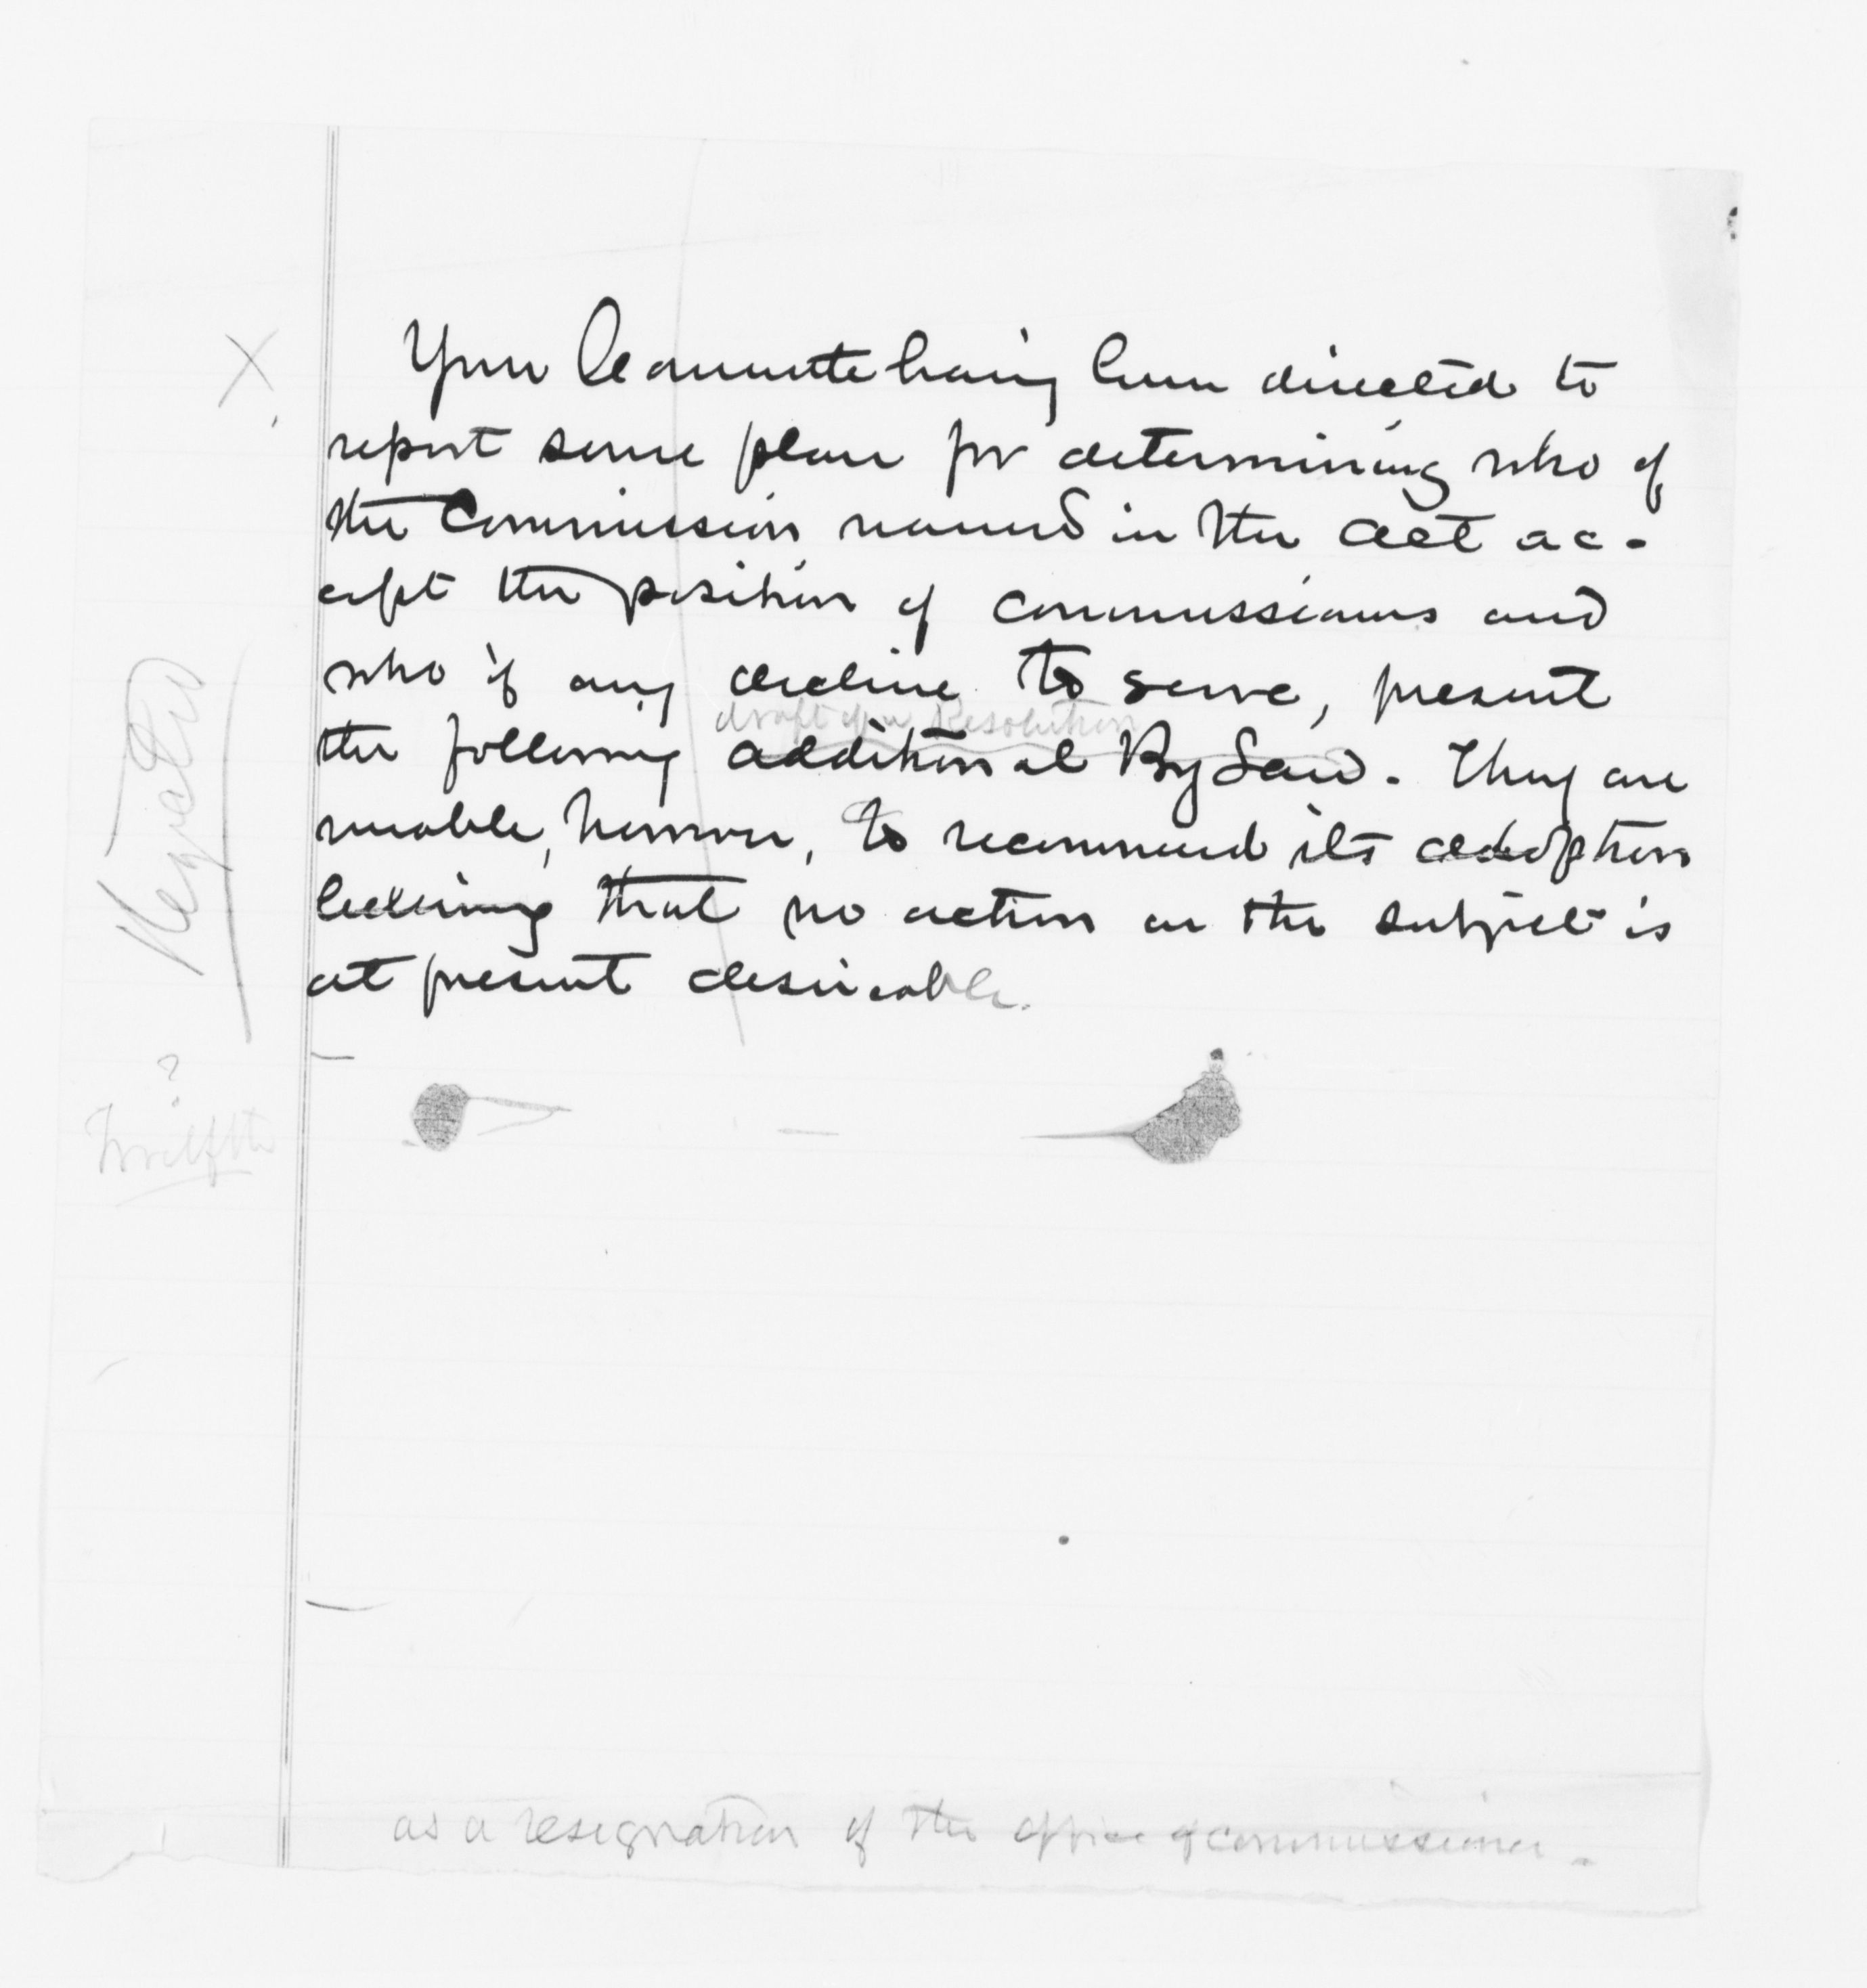 X
Your Committee having been directed to
report some plan for determining who of
the Commission named in the act ac-
cept the position of commissioners and
who if any decline to serve, present
draft of a Resolution
the following additional By Law. They are
unable, however, to recommend its adoption
believing that no action on the subject is
at present desireable.
Negatived
?
Twelfth
as a resignation of the office of commissioner.